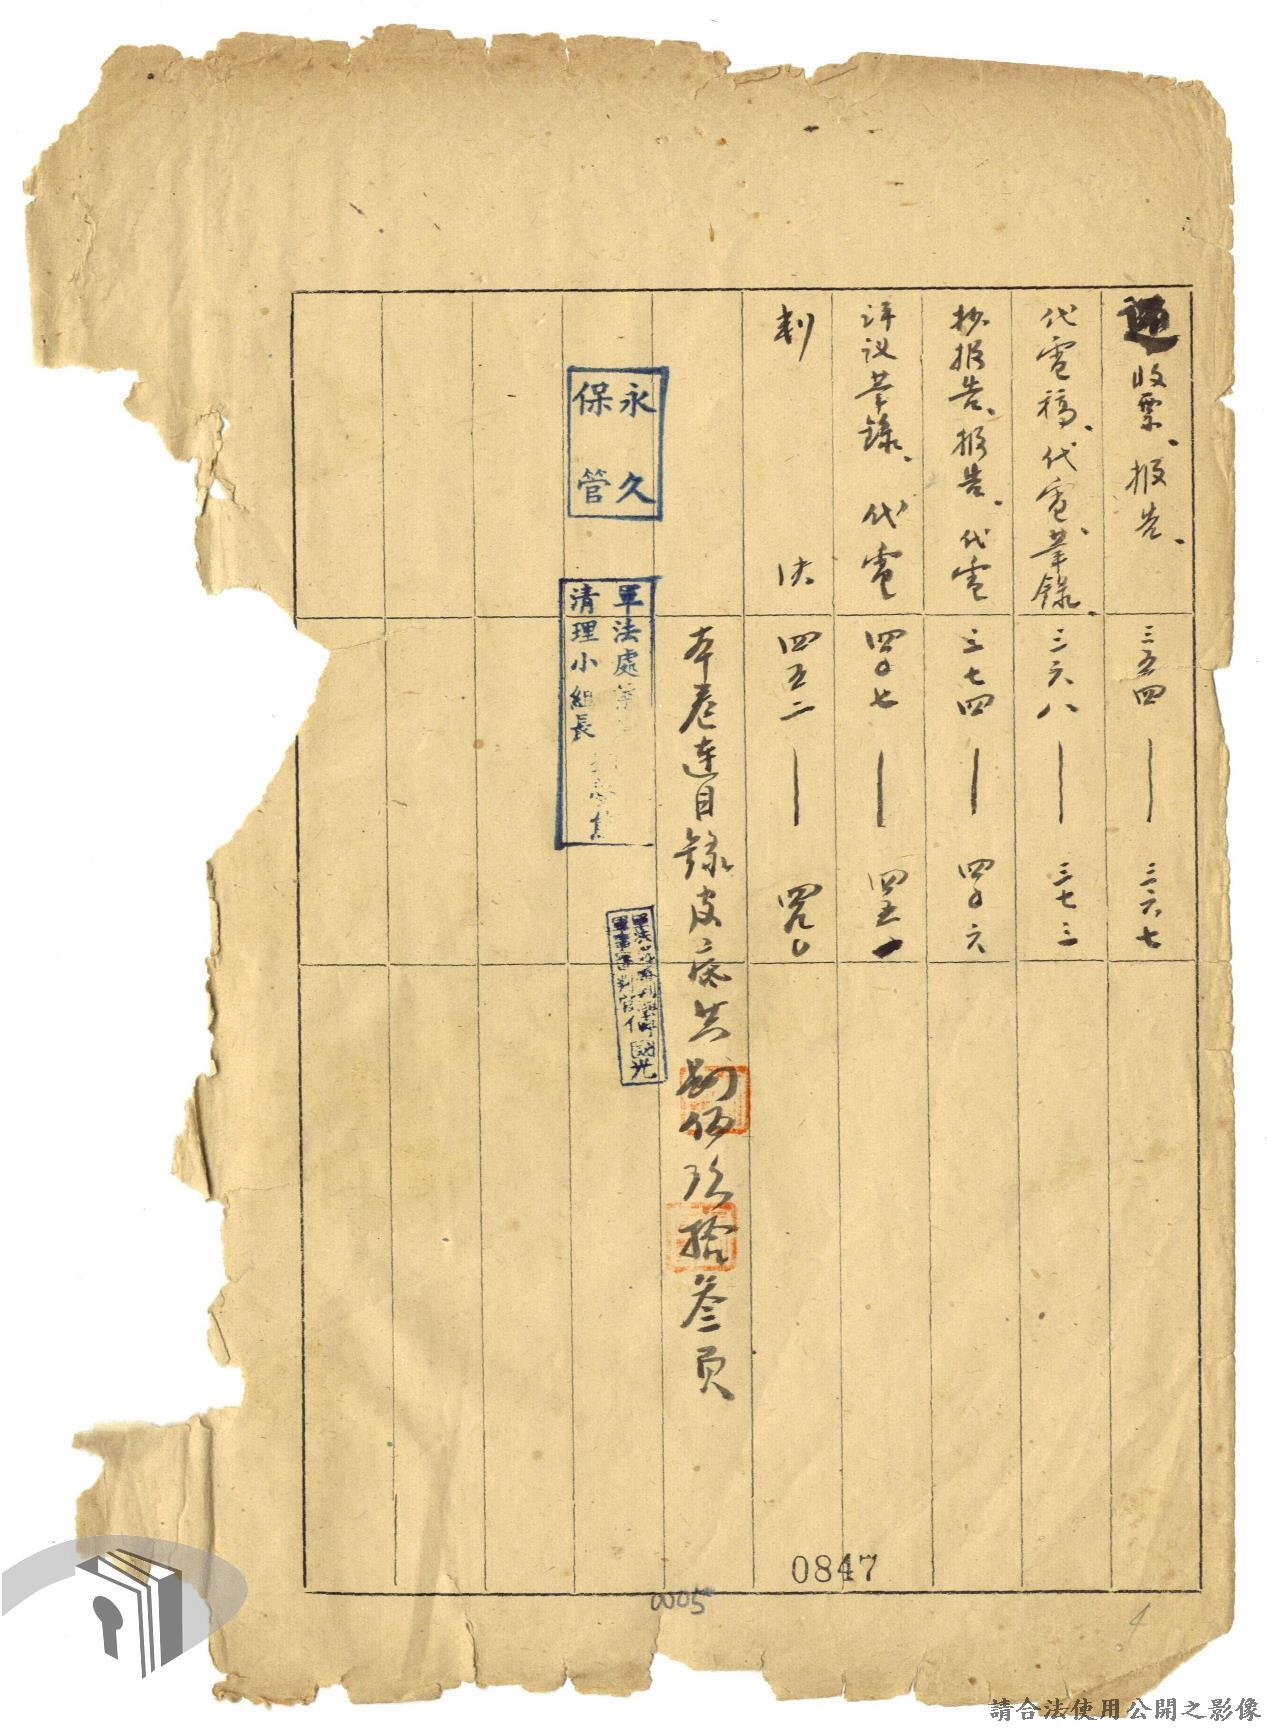 收票、报告、 三五四 — 三六七
代電稿、代電、筆錄、 三六八 — 三七三
抄报告、报告、代電 三七四 — 四〇六
评议筆錄、代電 四〇七 — 四五一
判 决 四五二 — 四九〇
本卷連目錄皮底共肆佰玖拾叁頁
永久
保管
軍法處
清理小組長
國光
0847
0005
請合法使用公開之影像